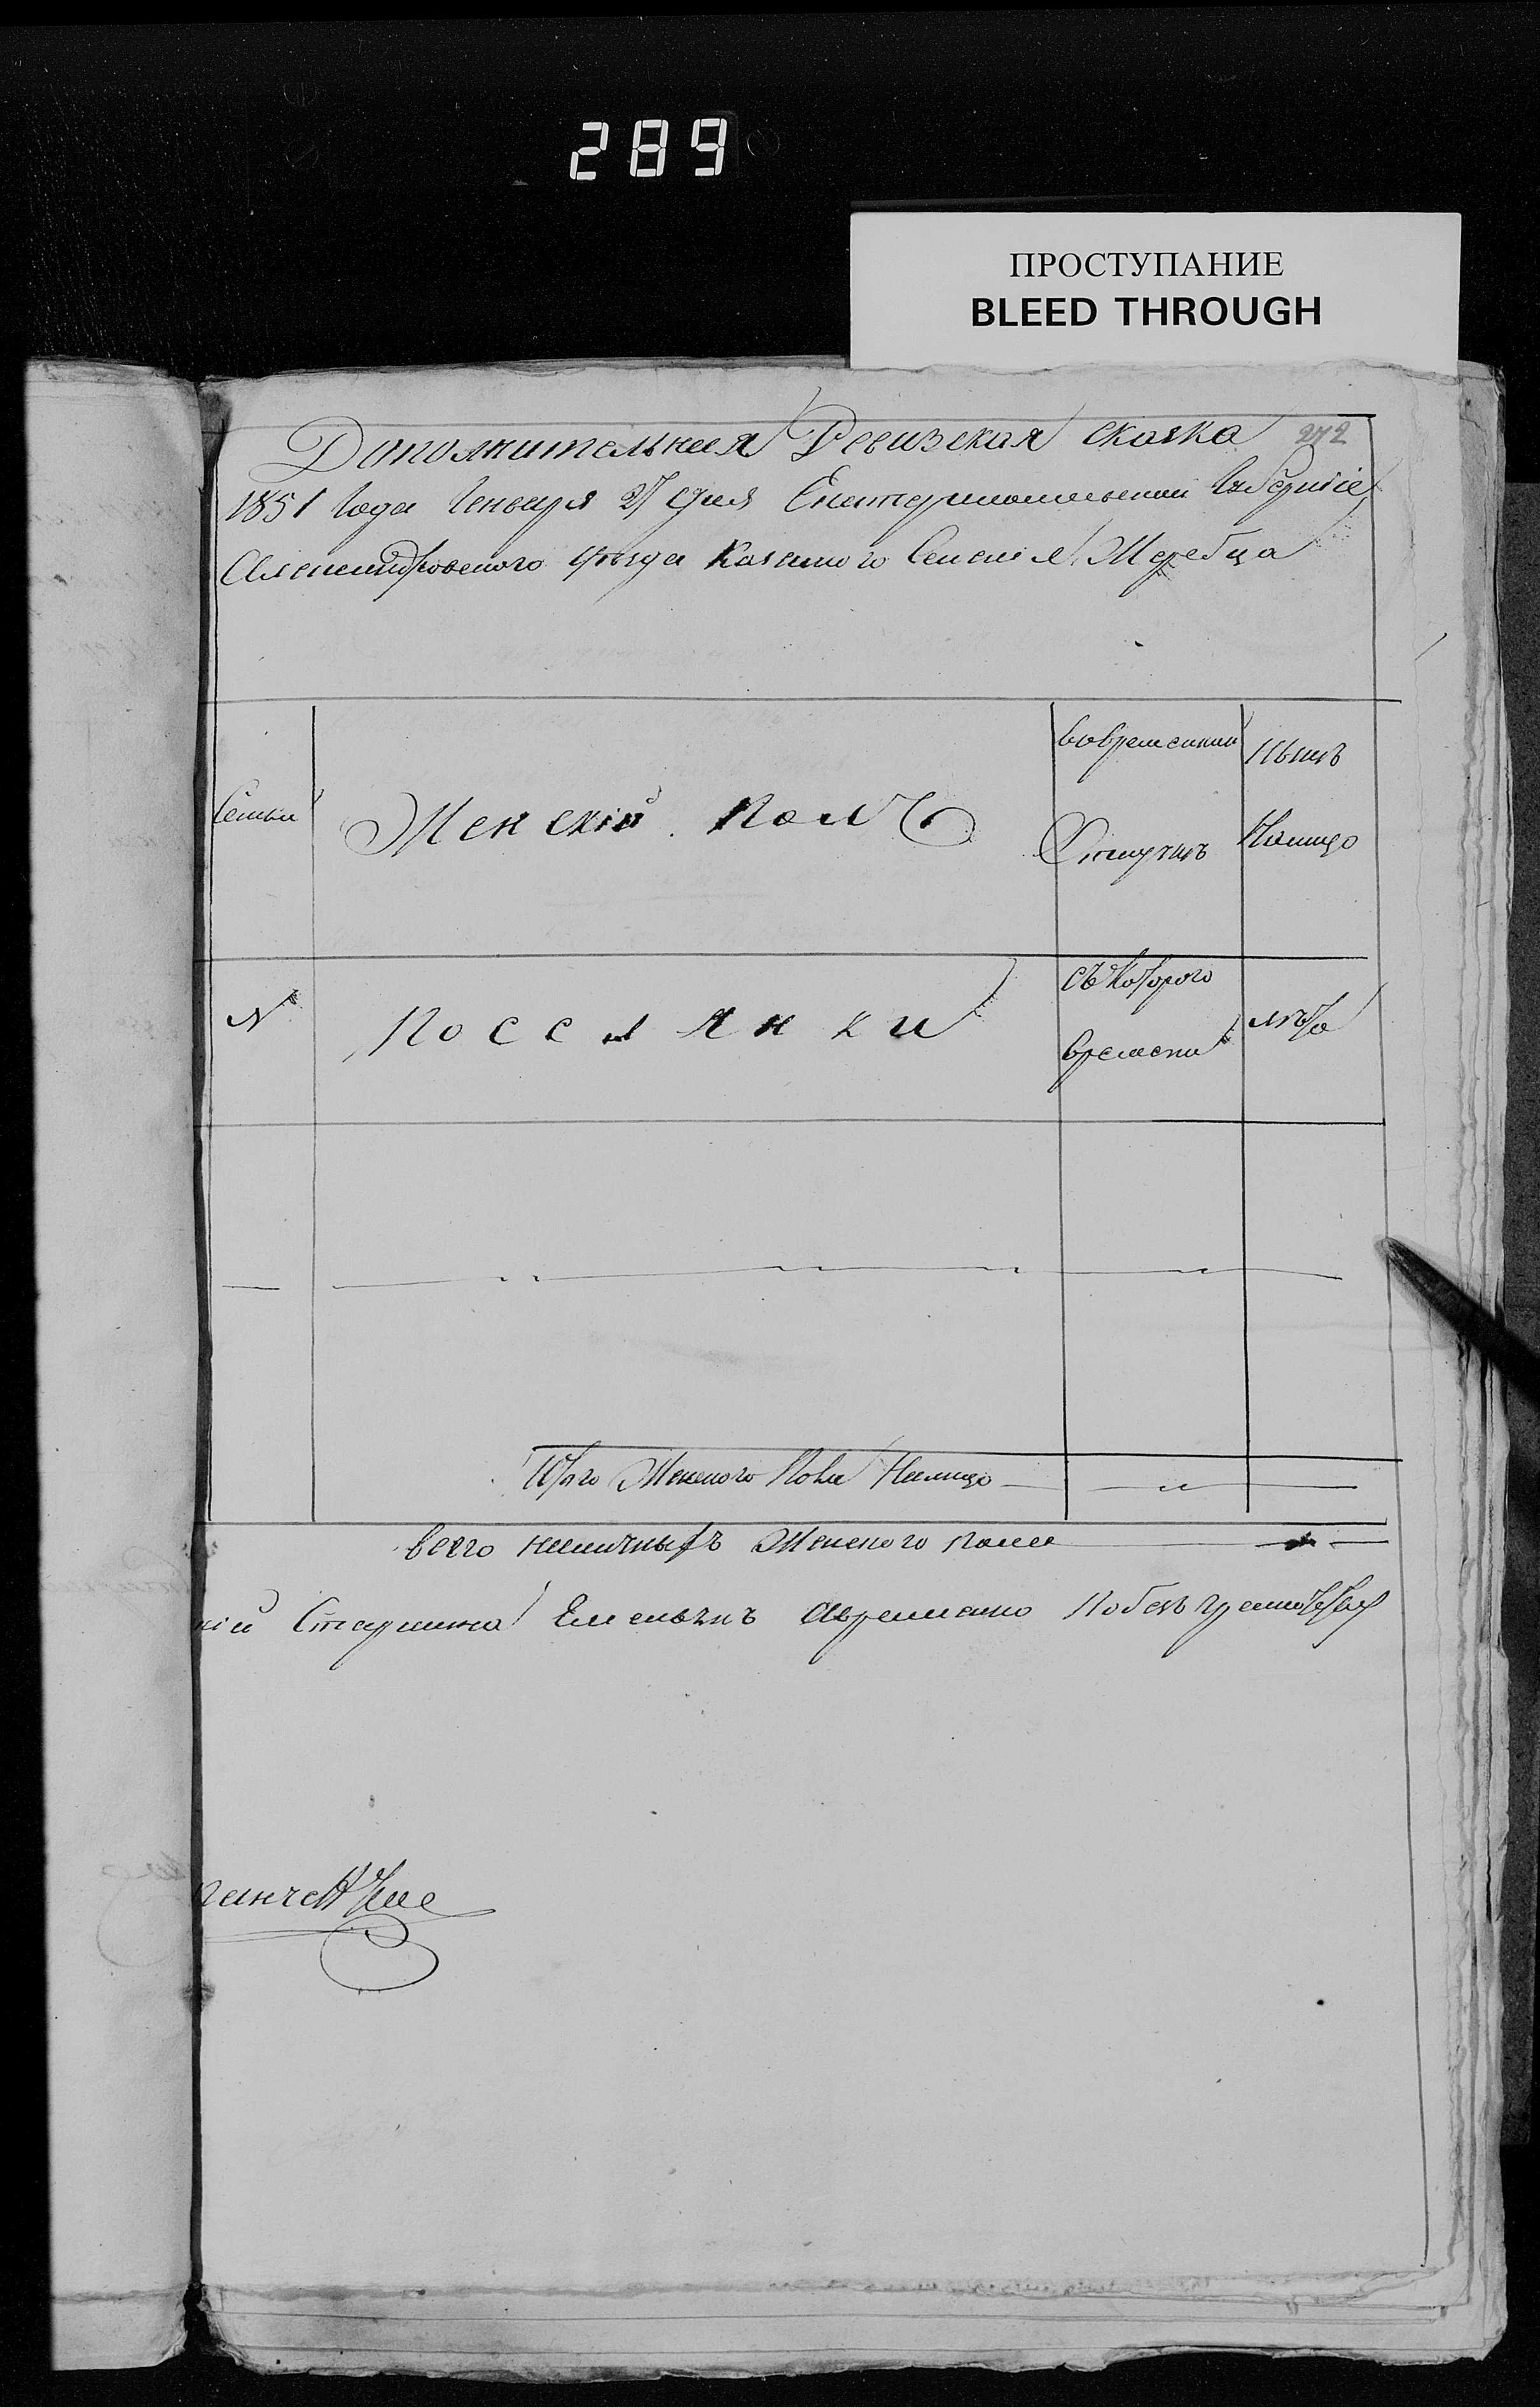 289
ПРОСТУПАНИЕ
BLEED THROUGH
Дополнительная Ревизская сказка 272
1851 Года Генваря 27 дня Екатеринославской Губерніи
Александровского уѣзда Казенного Селенія Жеребца
Семьи
Женскій Полъ
вовременной
Отлучкѣ
Нынѣ
Налицо
N
Посселянки
съ которого
времени
лѣта
Итого Женского Пола Налицо
Всего наличныхъ Женского пола
кій Старшина Емельянъ Авраменко